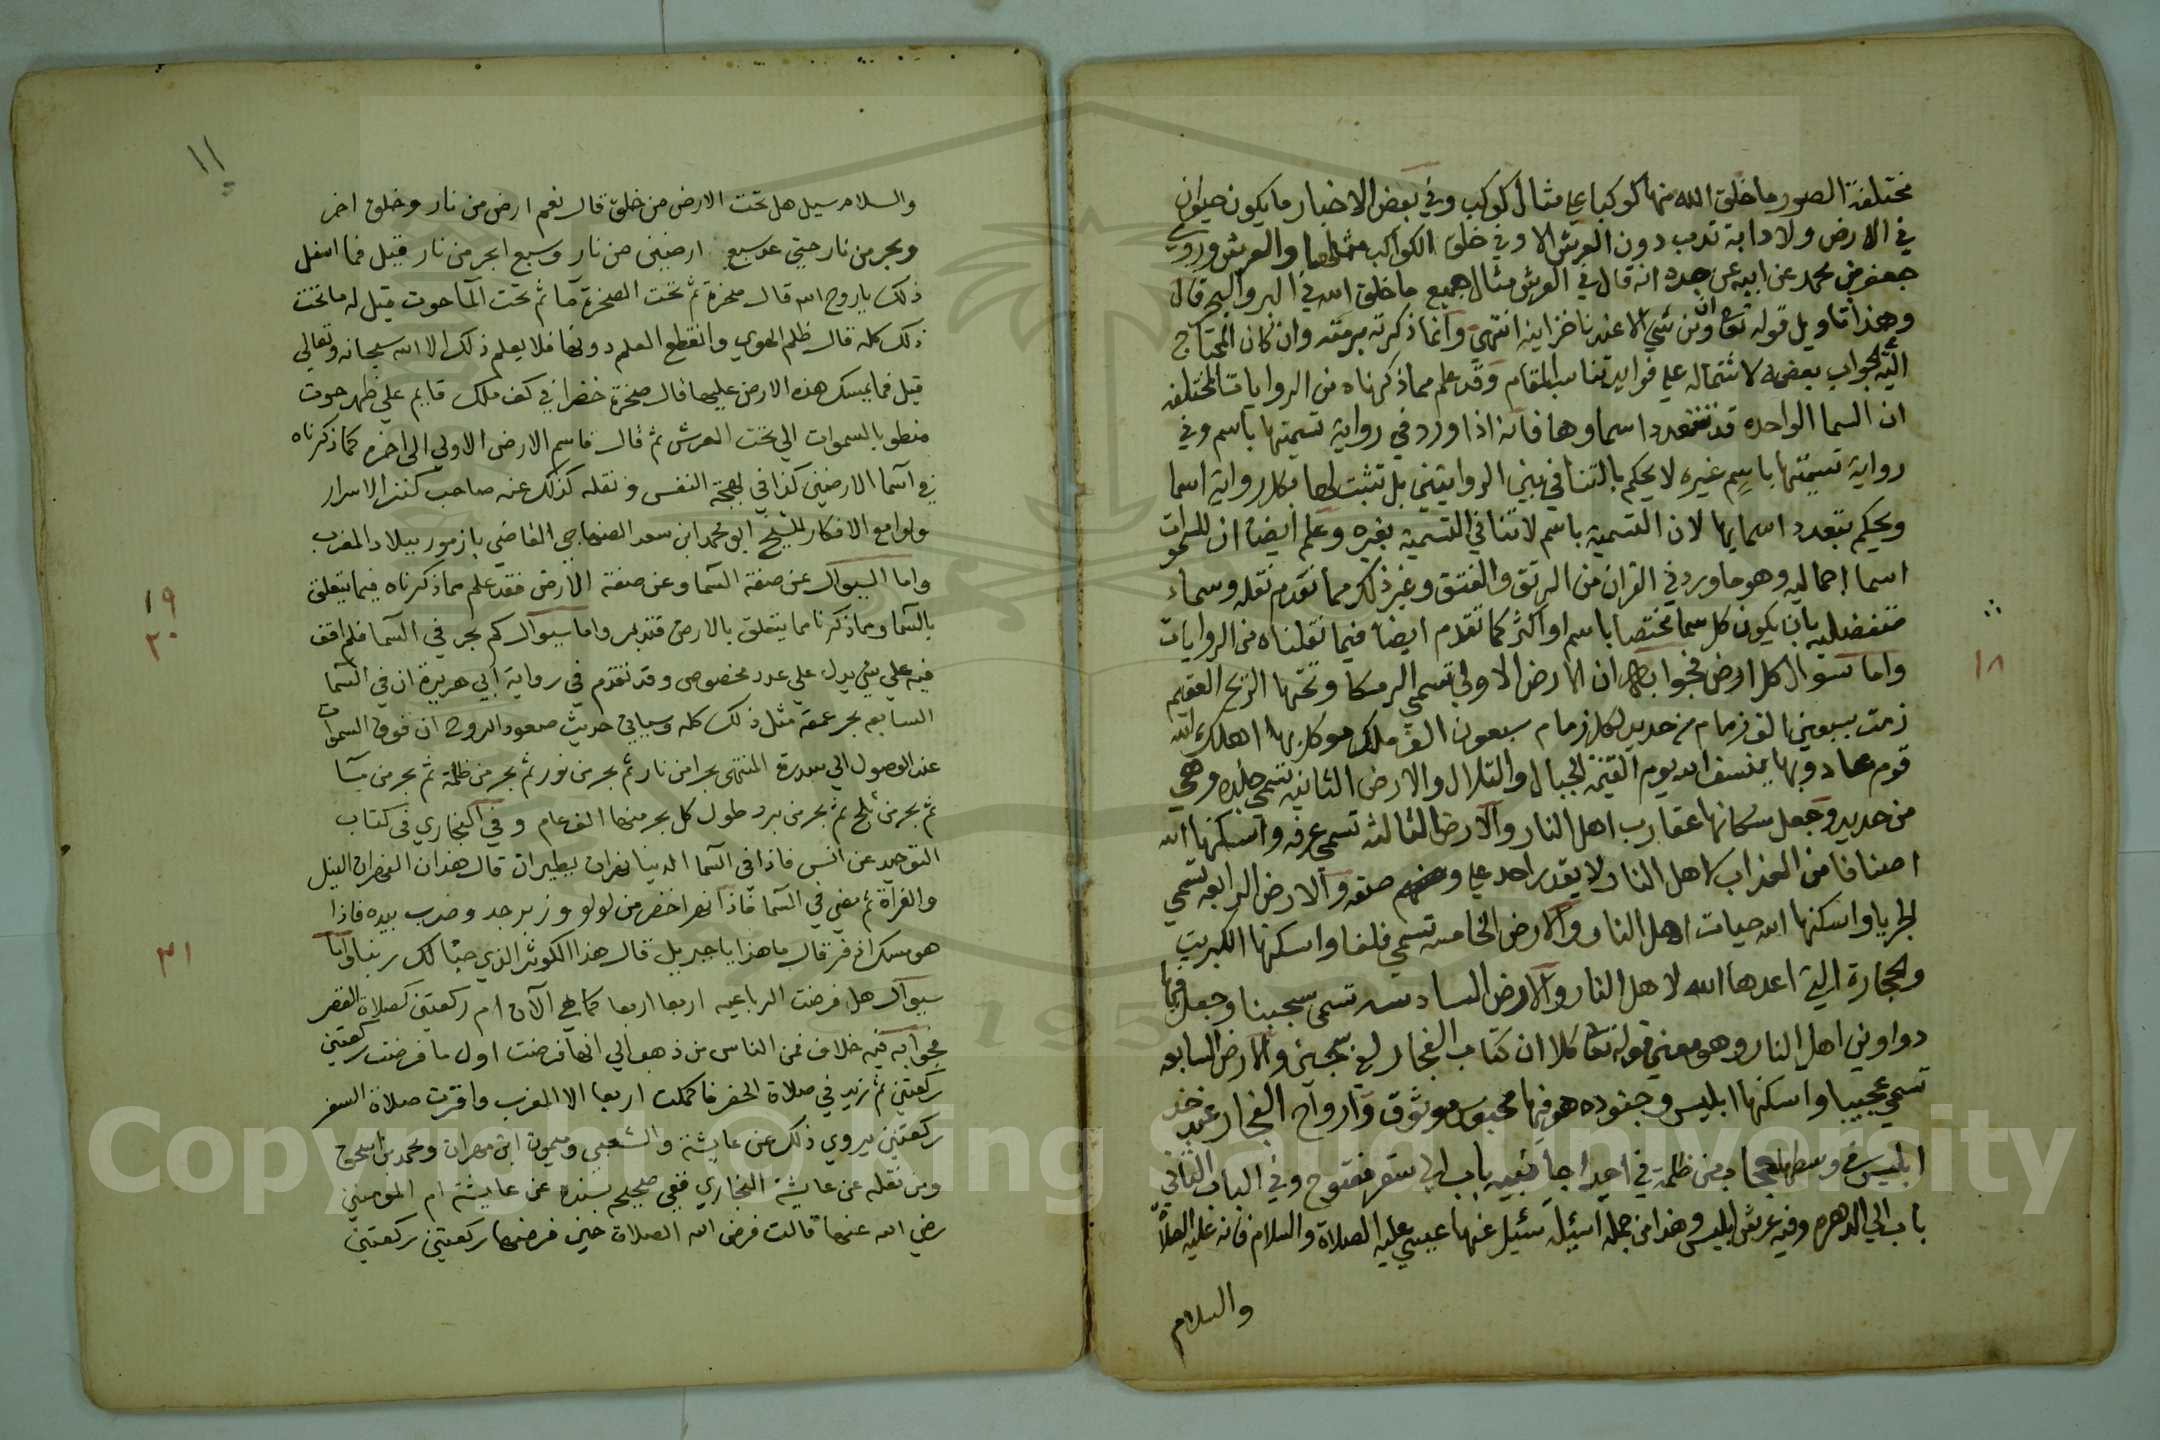 مختلفة الصور ما خلق الله منها كوكبا علي مثال كوكب وفي بعض الاخبار ما يكون حيوان
في الارض ولا دابة تدب دون العرش الا وفي خلق الكواكب مثلها والعرش وروي
جعفر بن محمد عن ابيه عن جده انه قال في العرش مثال جميع ما خلق الله في البر والبحر قال
وهذا تاويل قوله تعا وان من شي الا عندنا خزاينه انتهي وانما ذكرته برمته وان كان المحتاج
اليه للجواب بعضه لاشتماله علي فوايد تناسب المقام وقد علم مما ذكرناه من الروايات المختلفه
ان السما الواحده قد تتعدد اسماوها فانه اذا ورد في رواية تسميتها باسم وفي
رواية تسميتها باسم غيره لا يحكم بالتنافي بين الروايتين بل تثبت لها بكل رواية اسما
ويحكم بتعدد اسمايها لان التسمية باسم لا تنافي التسمية بغيره وعلم ايضا ان للسموات
اسما اجماليه وهو ما ورد في القران من الرتق والفتق وغير ذلك مما تقدم نقله وسماء
تفضيليه بان يكون كل سما مختصا باسم او اكثر كما تقدم ايضا فيما نقلناه من الروايات
واما سوال كل ارض فجوابه ان الارض الاولي تسمي الرمكا وتحتها الريح العقيم
زمت بسبعين الف زمام من حديد لكل زمام سبعون الف ملك موكل بها اهلك الله
قوم عاد وبها ينسف الله يوم القيمة الجبال والتلال والارض الثانيه تسمي خلده وهي
من حديد وجعل سكانها عقارب اهل النار والارض الثالثه تسمي عرفه واسكنها الله
اصنافا من العذاب لاهل النار لا يقدر احد علي صفه والارض الرابعه تسمي
الجربا واسكنها الله حيات اهل النار والارض الخامسه تسمي فلفا واسكنها الكبريت
والحجارة التي اعدها الله لاهل النار والارض السادسه تسمى سجينا وجعل فيها
دواوين اهل النار وهو معني قوله تعا كلا ان كتاب الفجار لفي سجين والارض السابعه
تسمي عجيبا واسكنها ابليس وجنوده هو فيها محبوس موثوق وارواح الفجار عند خد
ابليس وسطها حجاب من ظلمة في احد باب الي سقر مفتوح وفي الباب الثاني
باب الي الدهرم وفيه عرش ابليس وهذا من جمله اسيله سئيل عنها عيسي عليه الصلاة والسلام فانه عليه الصلاة
والسلام
١٨
١١
والسلام سيل هل تحت الارض من خلق قال نعم ارض من نار وخلق اخر
وبحر من نار حتي عد سبع ارضين من نار وسبع ابحر من نار قيل فما اسفل
ذلك يا روح الله قال صخرة ثم تحت الصخرة ما ثم تحت الما حوت قيل له ما تحت
ذلك كله قال ظلم الهوي وانقطع العلم دونها فلا يعلم ذلك الا الله سبحانه وتعالي
قيل فما يمسك هذه الارض عليها قال صخرة خضرا في كف ملك قايم علي ظهر حوت
منطو بالسموات الي تحت العرش ثم قال قاسم الارض الاولي الى اخره كما ذكرناه
في اسما الارضين كذا في بهجة النفس ونقله كذلك عنه صاحب كنز الاسرار
ولوامع الافكار للشيخ ابو محمد ابن سعد الصنهاجي القاضي بازمور ببلاد المغرب
واما السوال عن صفة السما وعن صفة الارض فقد علم مما ذكرناه فيما يتعلق
بالسما ومما ذكرنا مما يتعلق بالارض فتدبر واما سوال كم بحر في السما فلم اقف
فيه علي شي يدل علي عدد مخصوص وقد تقدم في رواية ابي هريرة ان في السما
السابعه بحر عمقه مثل ذلك كله وسياتي حديث صعود الروح ان فوق السموات
عند الوصول الي سدرة المنتهى بحرا من نار ثم بحر من نور ثم بحر من ظلمة ثم بحر من ما
ثم بحر من ثلج ثم بحر من برد طول كل بحر منها الف عام وفي البخاري في كتاب
التوحيد عن انس فاذا في السما الدنيا نهران يطيران قال هذان النهران النيل
والفراة ثم مضي في السما فاذا نهر اخضر من لولو وزبرجد وضرب بيده فاذا
هو مسك اذفر قال ما هذا يا جبريل قال هذا الكوثر الذي خبا لك ربك واما
سوال هل فرضت الرباعيه اربعا اربعا كما هي الآن ام ركعتين كصلاة القصر
فجوابه فيه خلاف فمن الناس من ذهب الي انها فرضت اول ما فرضت ركعتين
ركعتين ثم زيد في صلاة الحضر فاكملت اربعا الا المغرب واقرت صلاة السفر
ركعتين يروي ذلك عن عايشة والشعبي وميمون ابن مهران ومحمد بن اسحق
ومن نقله عن عايشة البخاري ففي صحيحه بسنده عن عايشة ام المومنين
رضي الله عنها قالت فرض الله الصلاة حين فرضها ركعتين ركعتين
١٩
٢٠
٢١
Copyright © King Saud University
195